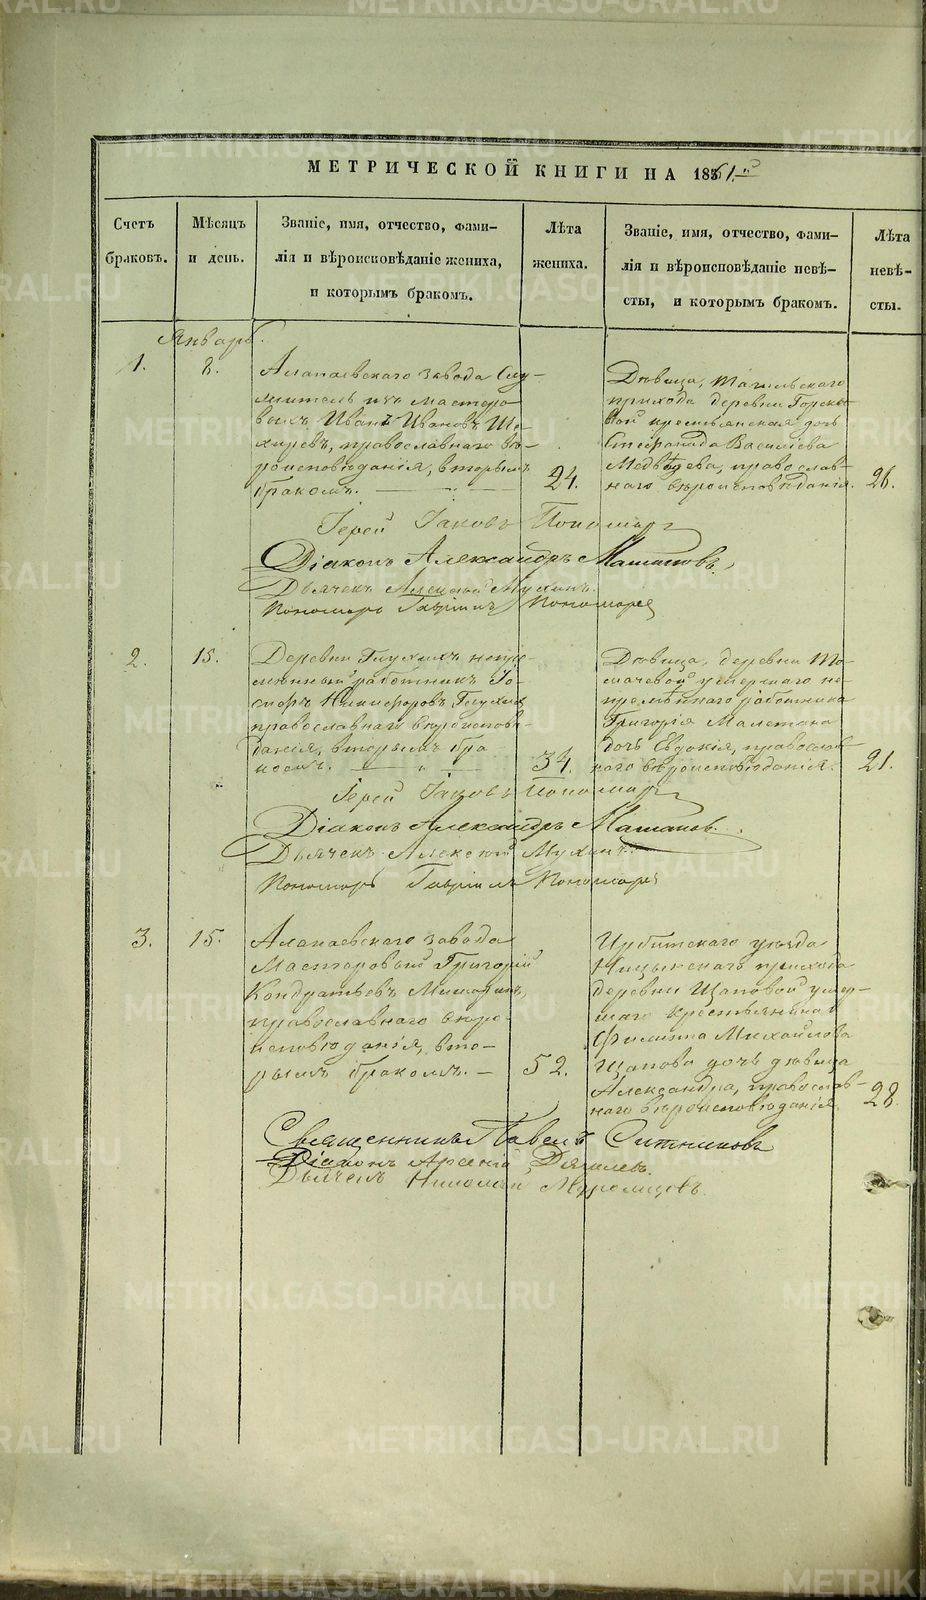 МЕТРИЧЕСКОЙ КНИГИ НА 1861й
Счетъ
браковъ.
Мѣсяцъ
и день.
Званіе, имя, отчество, фами-
лія и вѣроисповѣданіе жениха,
и которымъ бракомъ.
Лѣта
жениха.
Званіе, имя, отчество, фами-
лія и вѣроисповѣданіе невѣ-
сты, и которымъ бракомъ.
Лѣта
невѣ-
сты.
Январь.
1.
8.
Алапаевскаго завода Слу-
житель изъ мастеро
выхъ Иванъ Ивановъ
православнаго вѣ-
роисповѣданія, вторымъ
бракомъ.
24.
Дѣвица, Тагильскаго
прихода деревни
крестьянская дочь
Васильева
Медвѣдева, православ-
наго вѣроисповѣданія.
26.
Іерей Іаковъ Пономаре
Діаконъ Александръ
Дьячекъ Алексѣй Мухинъ.
Пономарь Гавріилъ Пономарев
2.
15.
Деревни Глухихъ непре-
мѣнный работникъ Іо-
сифъ Никифоровъ Глухихъ
православнаго вѣроиспове-
данія, вторымъ бра
комъ.
34.
Дѣвица, деревни То-
мачевой умершаго не-
премѣннаго работника
Григорія
дочь Евдокія, православ-
наго вѣроисповѣданія.
21.
Іерей Іаковъ Пономаре
Діаконъ Александръ
Дьячекъ Алексѣй Мухинъ
Пономарь Гавріилъ Пономарев
3.
15.
Алапаевскаго завода
Мастеровый Григорій
Кондратьевъ
православнаго вѣро-
исповѣданія, вто-
рымъ бракомъ.
52.
Ирбитскаго уѣзда
Ницынскаго прихода
деревни Щаповой умер-
шаго крестьянина
Филиппа Михайлова
Щапова дочь дѣвица
Александра, православ-
наго вѣроисповѣданія.
28.
Священникъ Павелъ Ситниковъ
Діаконъ Арсеній Дягилевъ.
Дьячекъ Николай Муромцовъ.
METRIKI.GASO-URAL.RU